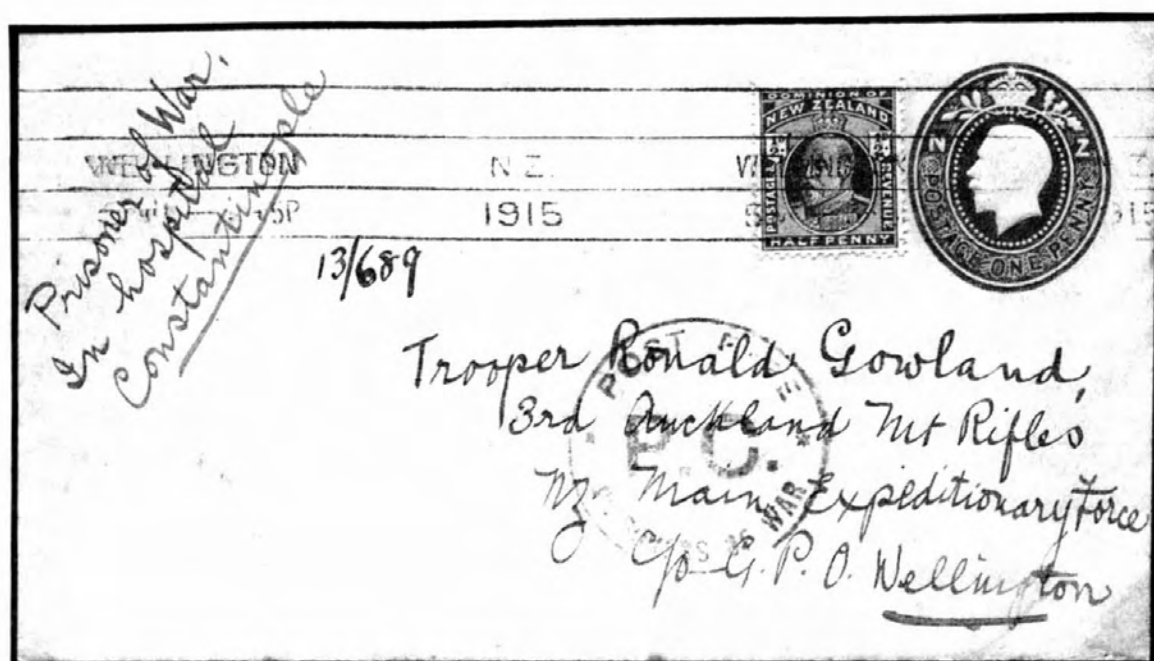 Prisoner of War.
In hospital
Constantinople
WELLINGTON N.Z.
5P 1915
DOMINION OF
NEW ZEALAND
POSTAGE & REVENUE
½ ½
HALF PENNY
N Z
POSTAGE ONE PENNY
13/689
Trooper Ronald Gowland,
3rd Auckland Mt Rifles
NZ Main Expeditionary Force
C/o G.P.O. Wellington
POST
P.C.
OF WAR